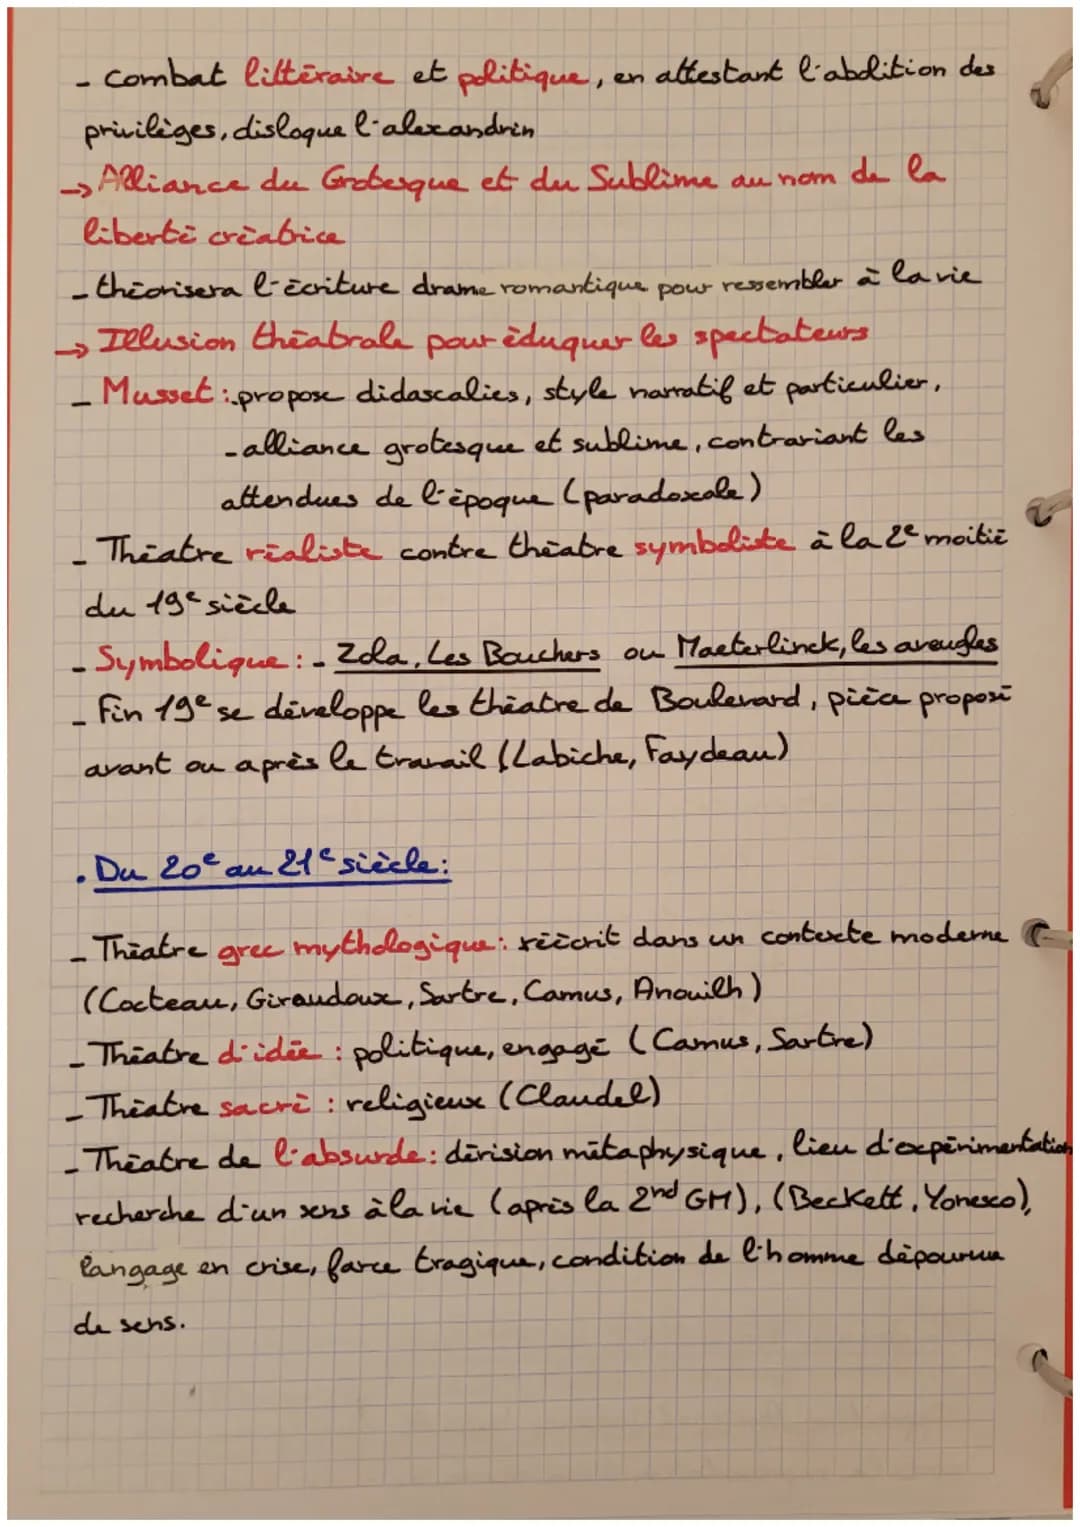 - combat littéraire et politique, en attestant l'abolition des
privilèges, disloque l'alexandrin
→ Alliance du Grotesque et du Sublime au nom de la
liberté créatrice
- théorisera l'écriture drame romantique pour ressembler à la vie
→ Illusion théatrale pour éduquer les spectateurs
- Musset : propose didascalies, style narratif et particulier,
- alliance grotesque et sublime, contrariant les
attendues de l'époque (paradoxale)
- Théatre réaliste contre théatre symboliste à la 2e moitié
du 19e siècle
- Symbolique : - Zola, Les Bouchers ou Maeterlinck, les aveugles
- Fin 19e se développe les théatre de Boulevard, pièce proposé
avant ou après le travail (Labiche, Faydeau)
. Du 20e au 21e siècle :
- Théatre grec mythologique : réécrit dans un contexte moderne
(Cocteau, Giraudoux, Sartre, Camus, Anouilh)
- Théatre d'idée : politique, engagé (Camus, Sartre)
- Théatre sacré : religieux (Claudel)
- Théatre de l'absurde : dérision métaphysique, lieu d'expérimentation
recherche d'un sens à la vie (après la 2nd GM), (Beckett, Yonesco),
langage en crise, farce tragique, condition de l'homme dépourvue
de sens.